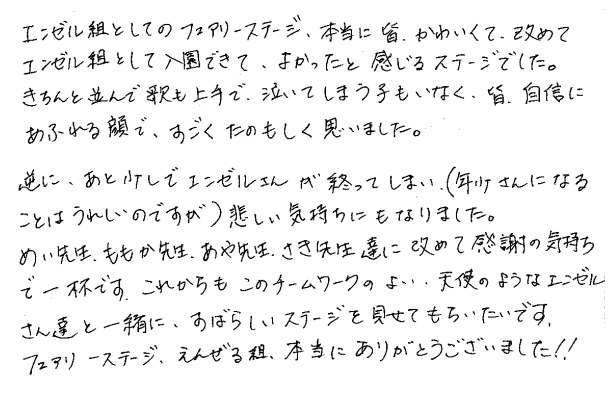 エンゼル組としてのフェアリーステージ、本当に皆、かわいくて、改めて
エンゼル組として入園できて、よかったと感じるステージでした。
きちんと並んで歌も上手で、泣いてしまう子もいなく、皆、自信に
あふれる顔で、すごくたのもしく思いました。
逆に、あと少しでエンゼルさんが終ってしまい、(年少さんになる
ことはうれしいのですが)悲しい気持ちにもなりました。
めい先生、ももか先生、あや先生、さき先生達に改めて感謝の気持ち
で一杯です。これからもこのチームワークのよい、天使のようなエンゼル
さん達と一緒に、すばらしいステージを見せてもらいたいです。
フェアリーステージ、えんぜる組、本当にありがとうございました!!